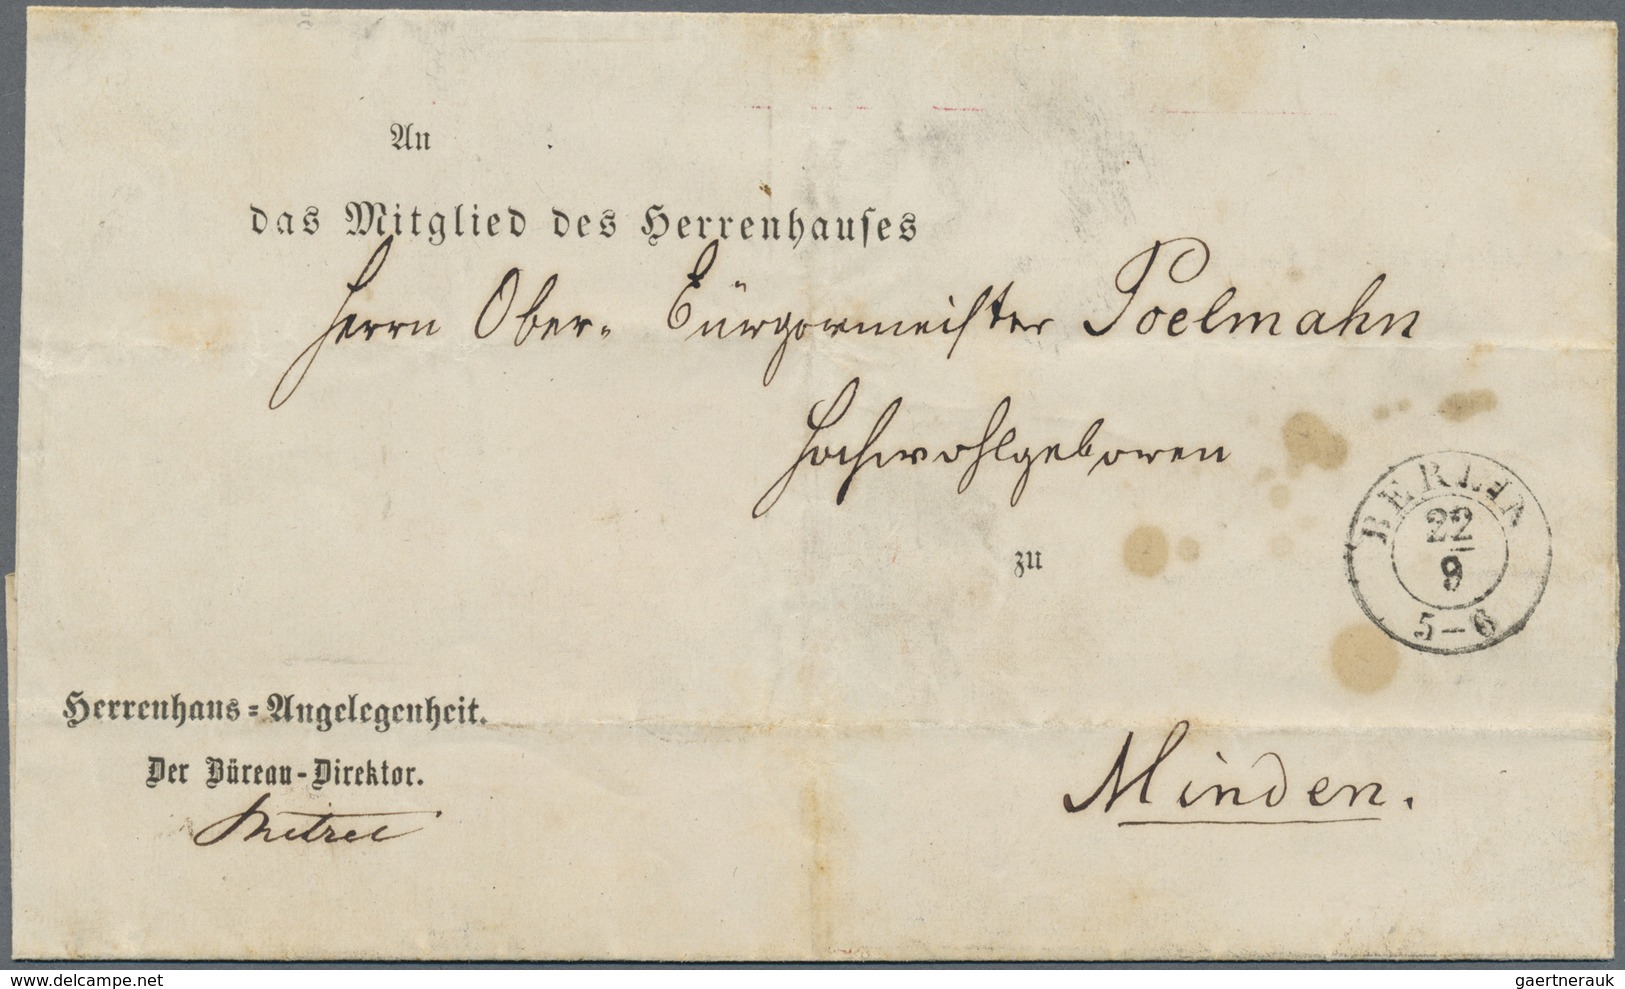 An
das Mitglied des Herrenhauſes
Herrn Ober- Bürgermeister Poelmahn
Hochwohlgeboren
zu
BERLIN
22
9
5-6
Herrenhaus-Angelegenheit.
Der Büreau-Direktor.
Minden.
www.delcampe.net
gaertnerauk